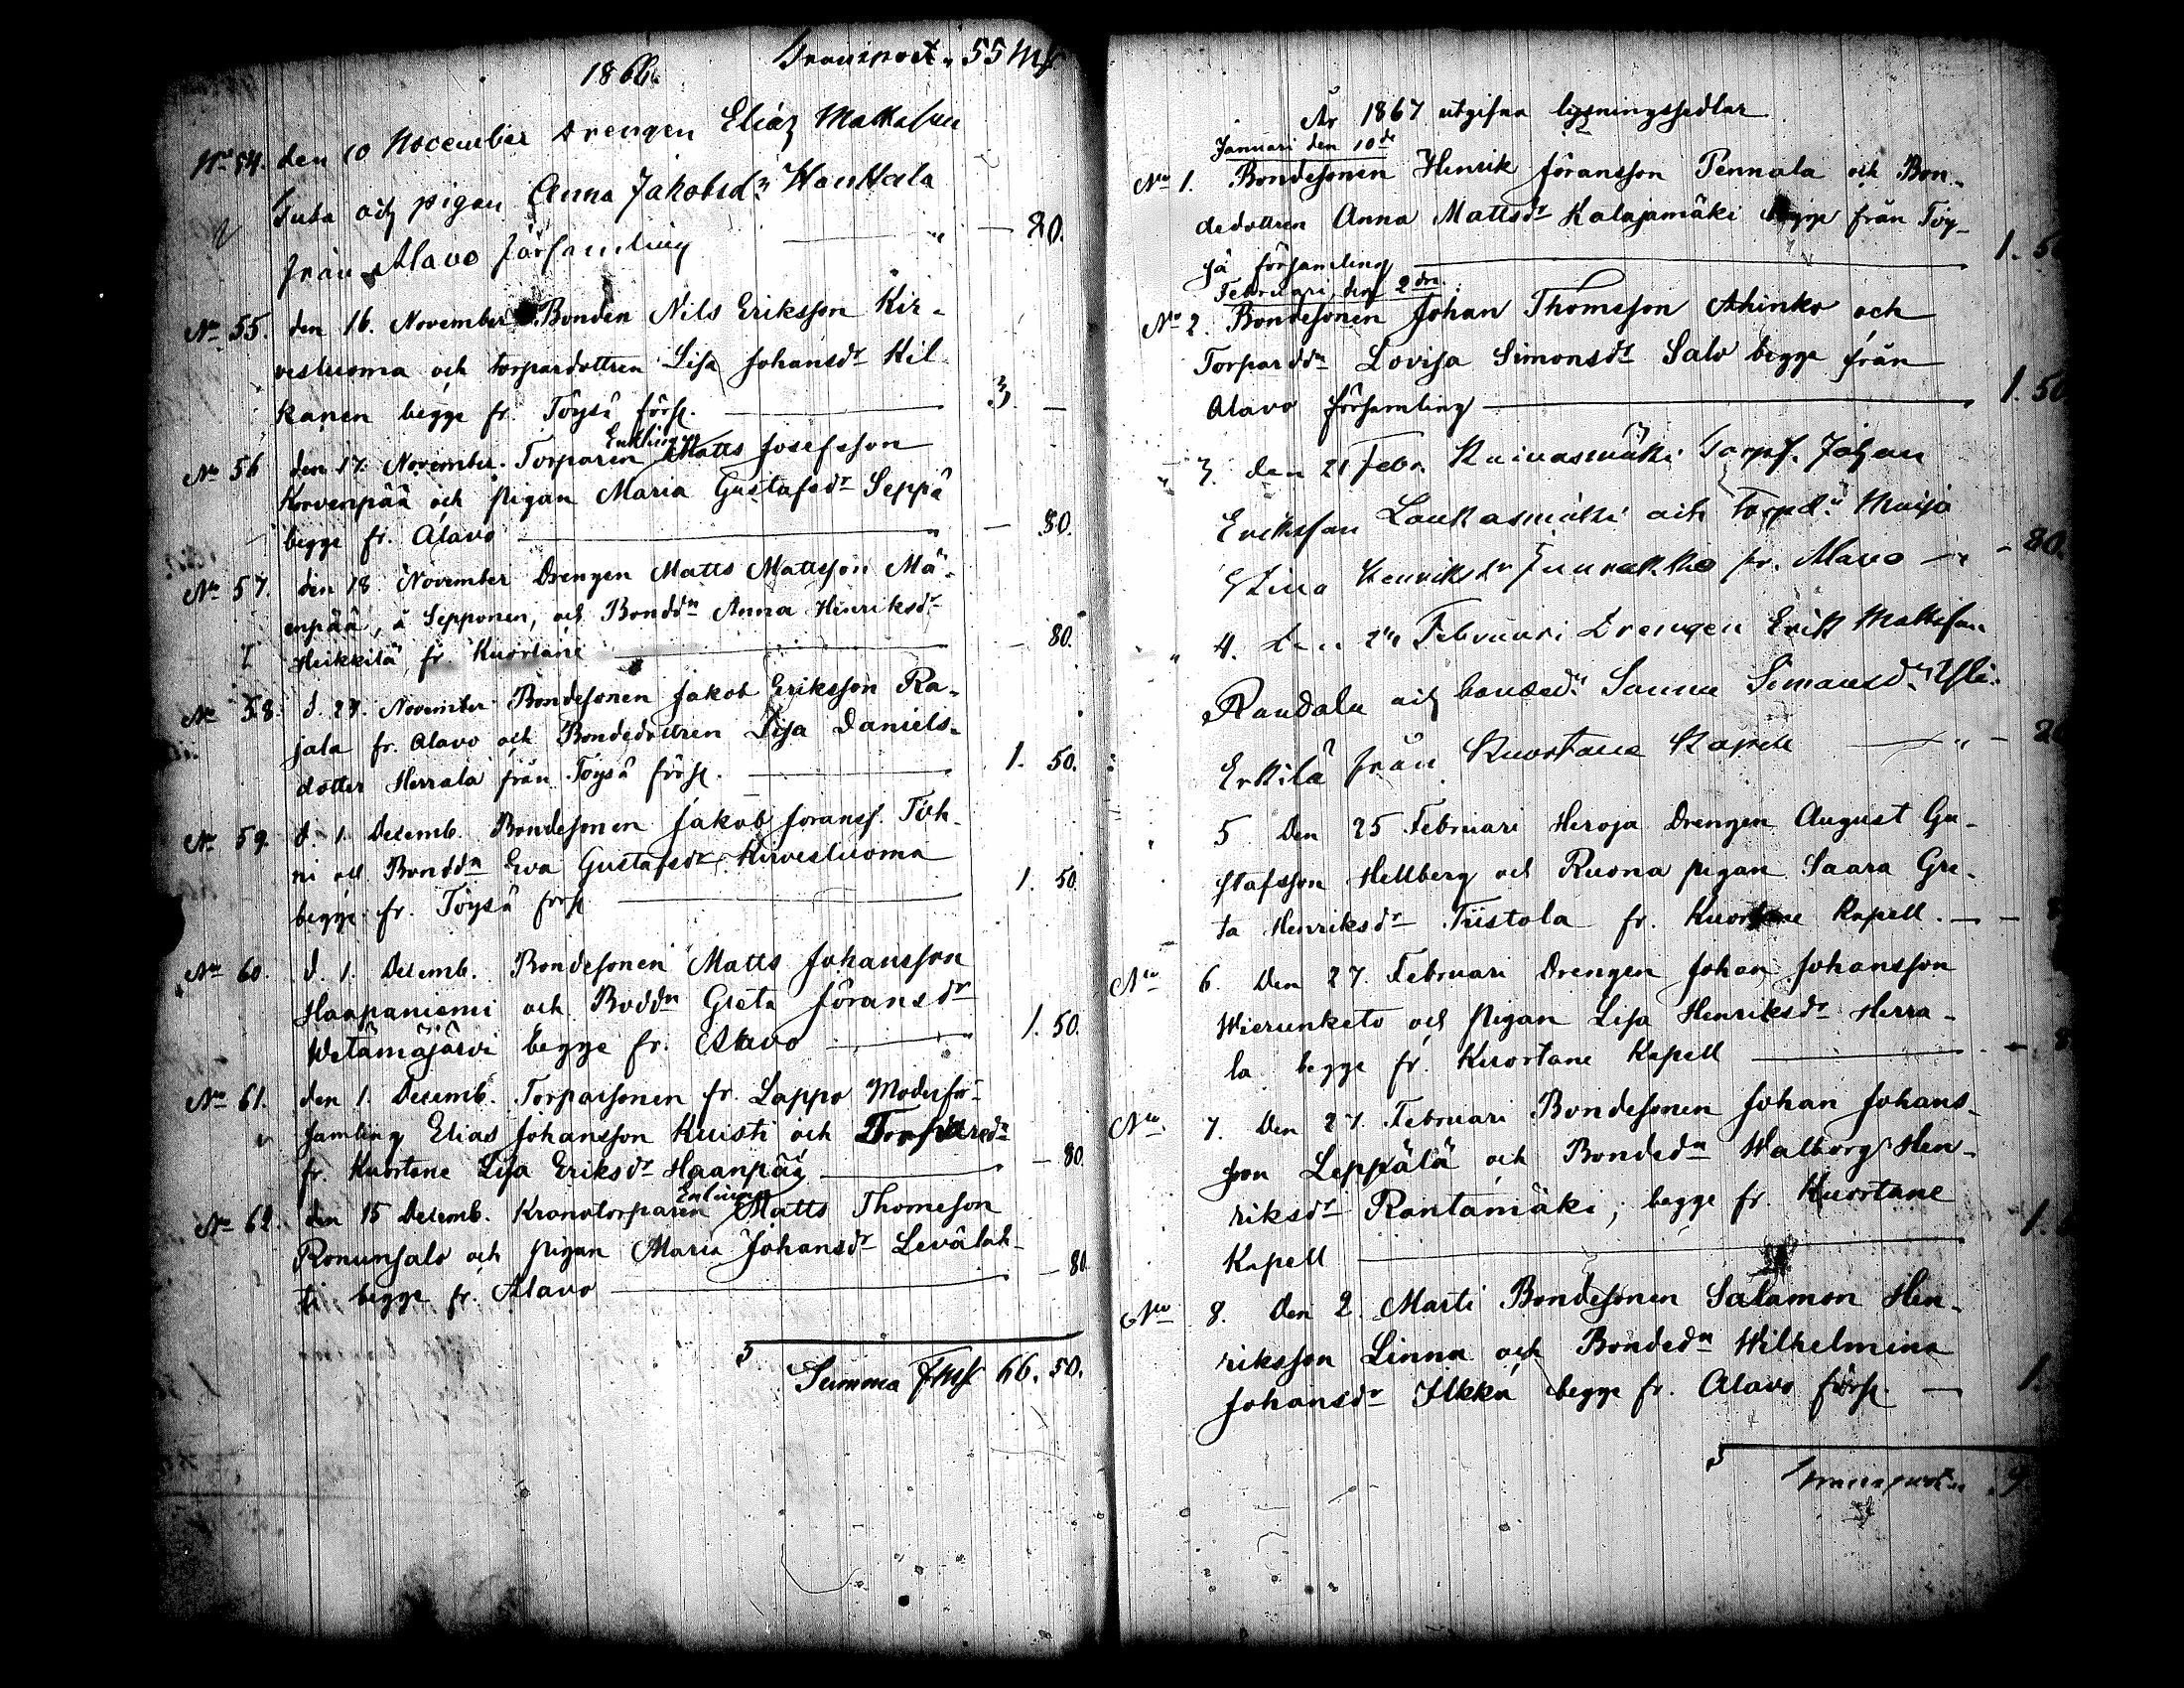 1866.
Transport " 55 Mk
No 54. den 10 November Drengen Elias Mattsson
Tuta och pigan Anna Jakobsdr
från Alavo församling — " — 80.
No 55. den 16. November Bonden Nils Eriksson Kir-
vesluoma och torpardottren Lisa Johansdr Kil
kanen begge fr. Töysä förs. — 3. —
Enkling
No 56 den 17. November. Torparen Matts Josefsson
Korvenpää och pigan Maria Gustafsdr Seppä
begge fr. Alavo — 80.
No 57. den 18 November Drengen Matts Mattsson Mä-
enpää, å Sepponen, och Bonddn Anna Henriksdr
Heikkilä, fr. Kuortane — 80.
No 58. d. 23. November Bondesonen Jakob Eriksson Ra-
jala fr. Alavo och Bondedottren Lisa Daniels-
dotter Herrala från Töysä förs. — 1. 50.
No 59. d. 1. Decemb. Bondesonen Jakob Joranss. Töh-
ni och Bonddn Eva Gustafsdr Kirvesluoma
begge fr. Töysä förs — 1. 50
No 60. d. 1. Decemb. Bondesonen Matts Johansson
Haapaniemi och Boddn Greta Joransdr
Wetämäjärvi begge fr. Alavo — 1. 50.
No 61. den 1. Decemb. Torparsonen fr. Lappo Moderför-
samling Elias Johansson Kuisti och Torparedn
fr. Kuortane Lisa Eriksdr Haanpää — 80.
Enkling
No 62. den 15 Decemb. Kronotorparen Matts Thomsson
Ronunsalo och pigan Maria Johansdr Levälah-
ti begge fr. Alavo — 80
Summa Fmk 66. 50.
År 1867 utgifna lysningssedlar
Januari den 10de
No 1. Bondesonen Henrik Joransson Pennala och Bon-
dedottren Anna Mattsdr Kalajamäki begge från Töy-
sä församling — 1. 50
Februari den 2dn.
No 2. Bondesonen Johan Thomsson Ahinko och
Torparddn Lovisa Simonsdr Salo begge från
Alavo församling — 1. 50
" 3. den 21 Febr. Torps. Johan
Eriksson Laukasmäki och Torpdn Maija
Stina Henriksdr fr. Alavo — " — 80.
" 4. Den Februari Drengen Erik Mattsson
Randala och bonddn Sanna Simonsdr Yli-
Erkilä från Kuortane Kapell — " — 80
5 Den 25 Februari Heroja Drengen August Gu-
stafsson Hellberg och Ruona pigan Saara Gre-
ta Henriksdr Tiistola fr. Kuortane Kapell. —
No 6. Den 27. Februari Drengen Johan Johansson
Wierunketo och pigan Lisa Henriksdr Herra-
la begge fr. Kuortane Kapell — 8
No 7. Den 27. Februari Bondesonen Johan Johans-
son Leppälä och Bondedn Walborg Hen-
riksdr Rantamäki, begge fr. Kuortane
Kapell — 1.
No 8. Den 2. Marti Bondesonen Salamon Hen-
riksson Linna och Bondedn Wilhelmina
Johansdr Ilkka begge fr. Alavo förs. — 1.
Transport 9